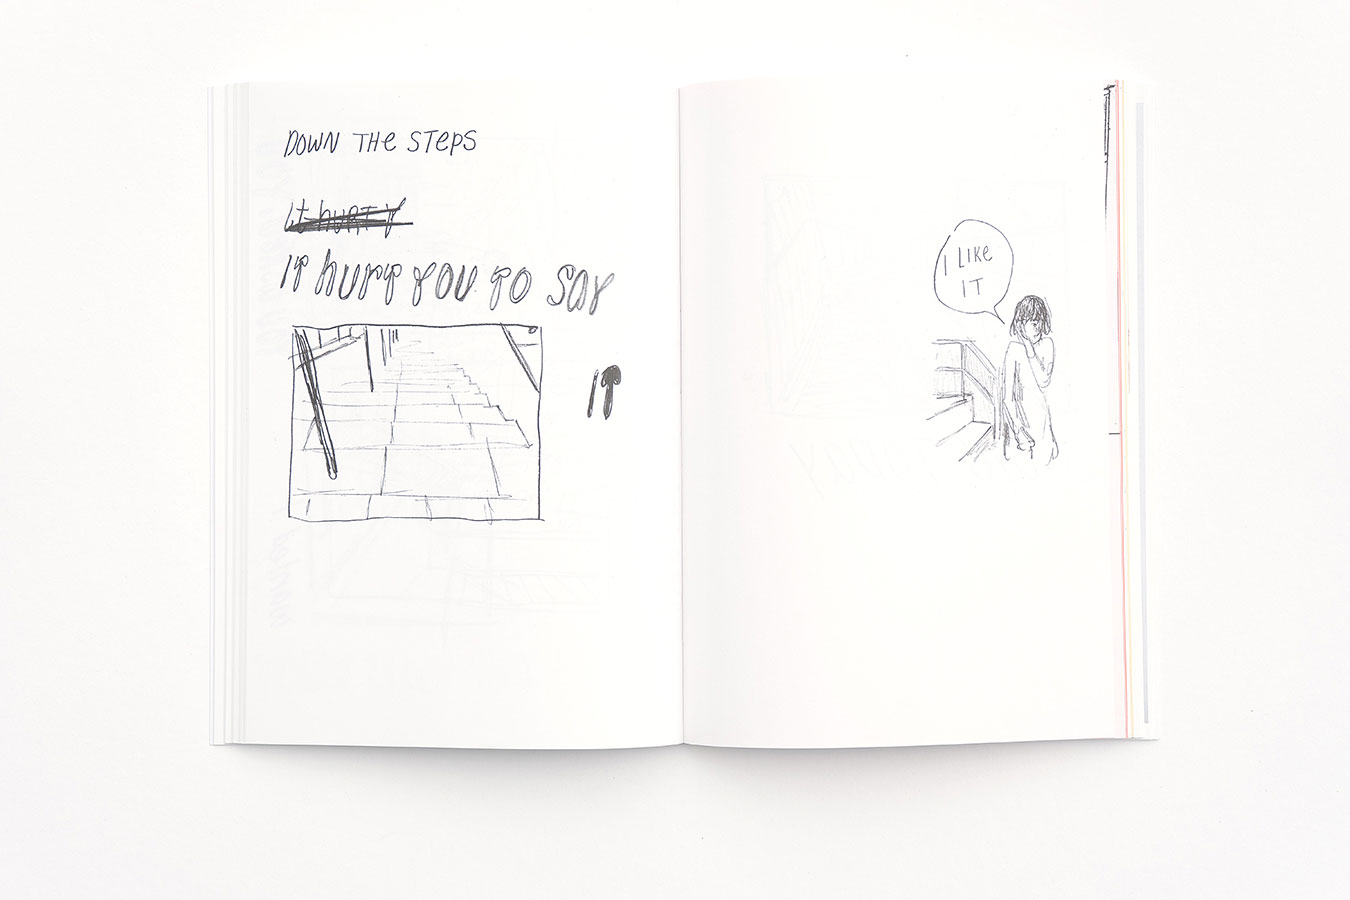 DOWN THE STePS
It hURT Y
IT hURT YOU TO SAY
IT
I LIKe
IT